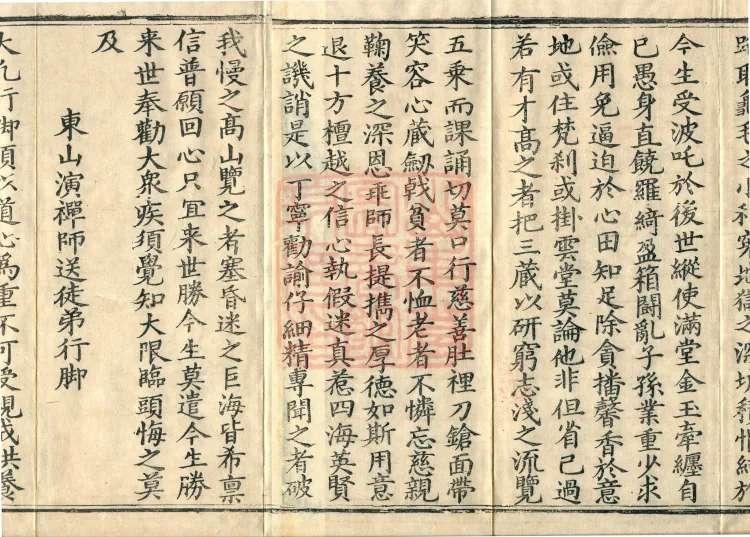 毛之小地獄之深於
今生受波吒於後世縱使滿堂金玉牽纏自
已愚身直饒羅綺盈箱鬪亂子孫業重少求
儉用免逼迫於心田知足除貪播馨香於意
地或住梵刹或掛雲堂莫論他非但省己過
若有才髙之者把三蔵以研窮志淺之流覽
五乘而課誦切莫口行慈善肚裡刀鎗面帶
笑容心蔵劔戟貧者不恤老者不憐忘慈親
鞠養之深恩乖師長提攜之厚德如斯用意
退十方檀越之信心執假迷真惹四海英賢
之譏誚是以丁寧勸諭仔細精專聞之者破
我慢之髙山覽之者塞昏迷之巨海皆希禀
信普願回心只宜来世勝今生莫遣今生勝
来世奉勸大衆疾須覺知大限臨頭悔之莫
及
東山演禪師送徒弟行脚
大凡行脚須以道心爲重不可受現成供養